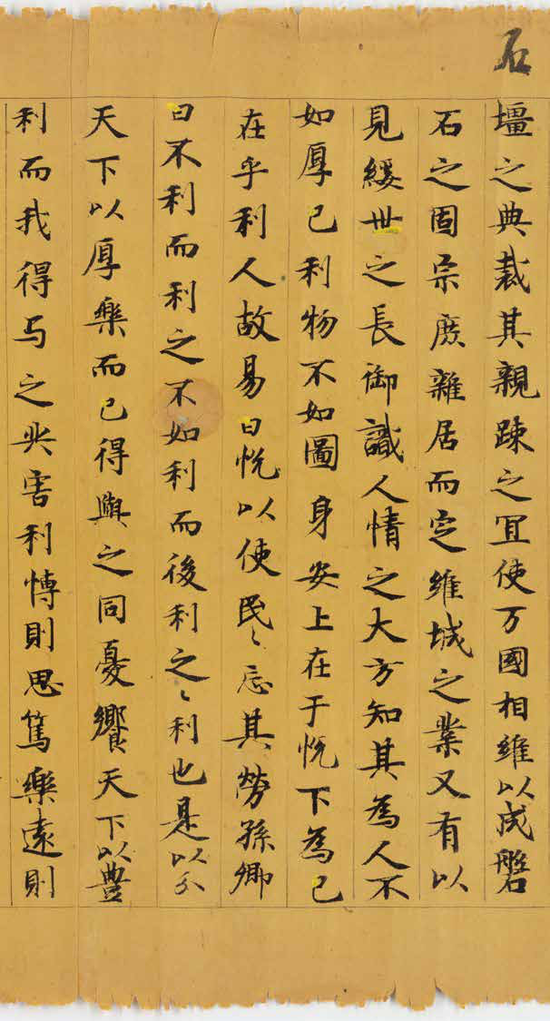 石
壃之典裁其親踈之冝使万國相維以成磐
石之固宗庶雜居而定維城之業又有以
見綏世之長御識人情之大方知其為人不
如厚己利物不如圖身安上在于悦下為己
在乎利人故易曰悦以使民〻忘其勞孫卿
曰不利而利之不如利而後利之〻利也是以分
天下以厚樂而己得與之同憂饗天下以豊
利而我得与之共害利愽則思篤樂遠則